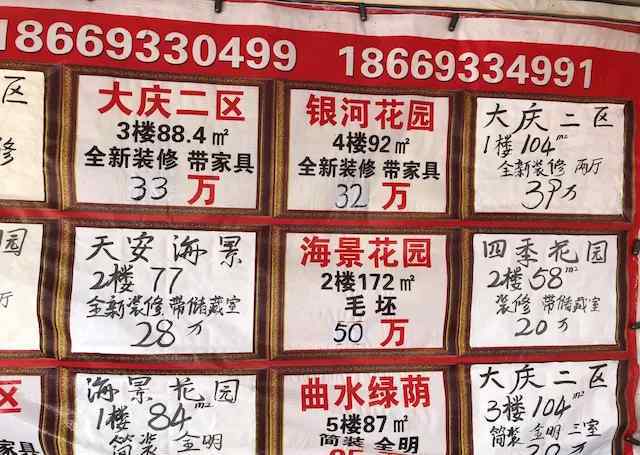 18669330499 18669334991
区
修
大庆二区
3楼88.4㎡
全新装修 带家具
33万
银河花园
4楼92㎡
全新装修 带家具
32万
大庆二区
1楼104m²
全新装修 两厅
39万
园
厅
天安海景
2楼77
全新装修 带储藏室
28万
海景花园
2楼172㎡
毛坯
50万
四季花园
2楼58m²
装修 带储藏室
20万
区
家具
海景花园
1楼84m²
简装 全明
曲水绿荫
5楼87㎡
简装 全明
大庆二区
3楼104m²
简装 全明 三室